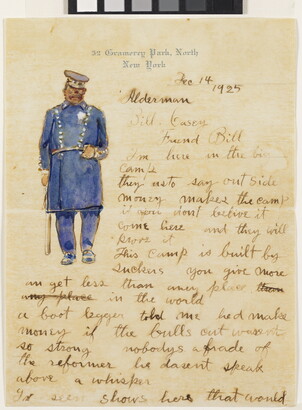 32 Gramercy Park, North
New York
Dec 14 1925
Alderman
Bill Casey
Friend Bill
I'm here in the bi
Camp
they usto say out side
money makes the camp
if you dont belive it
come here and they will
prove it
This camp is built by
suckers you give more
an get less than aney place
in the world
a boot legger told me hed make
money if the bulls cut wasent
so strong nobodys afrade of
the reformer he dasent speak
above a whisper
Iv seen shows here that would